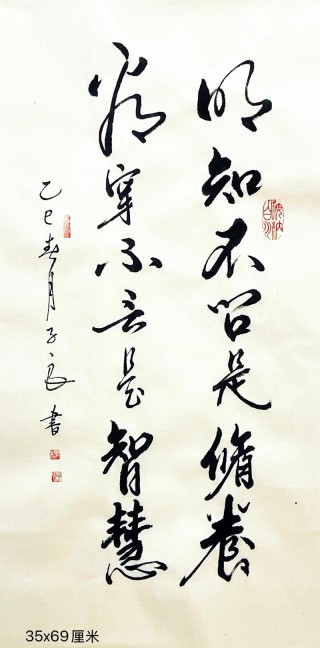 明知不问是脩養
看穿不言是智慧
乙巳春月子良書
35x69厘米